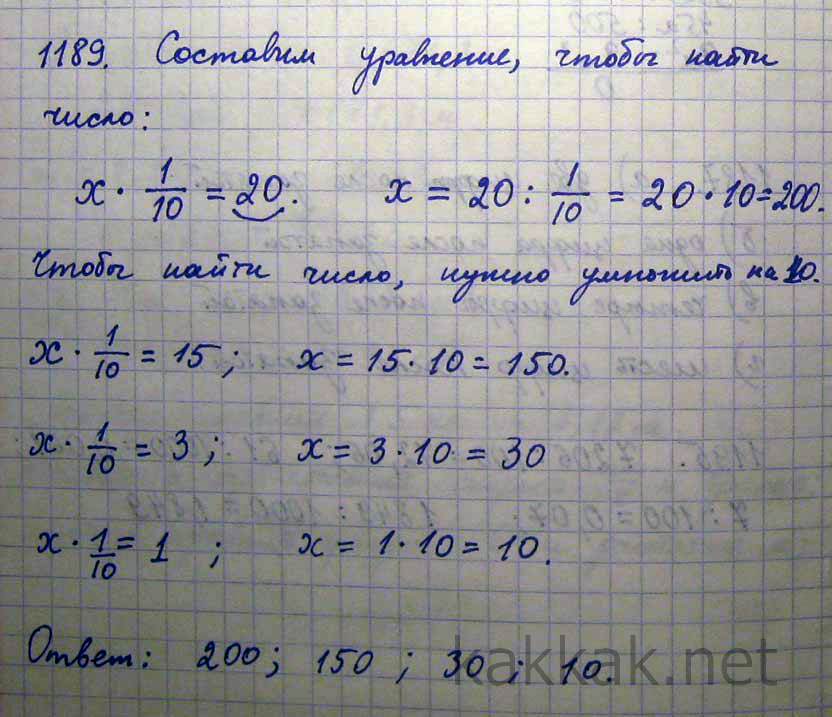 1189. Составим уравнение, чтобы найти
число:
x · 1/10 = 20. x = 20 : 1/10 = 20 · 10 = 200.
Чтобы найти число, нужно умножить на 10.
x · 1/10 = 15; x = 15 · 10 = 150.
x · 1/10 = 3; x = 3 · 10 = 30
x · 1/10 = 1 ; x = 1 · 10 = 10.
Ответ: 200; 150 ; 30 ; 10.
kakkak.net